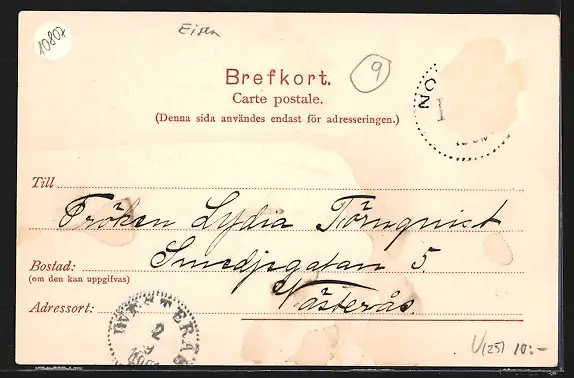 10802
Eisen
9
Brefkort.
Carte postale.
(Denna sida användes endast för adresseringen.)
NO
Till
Fröken Lydia Törnqvist
Bostad: Smedjegatan 5.
(om den kan uppgifvas)
Adressort: Västerås.
VESTERÅS
2
9
U(25) 10:-